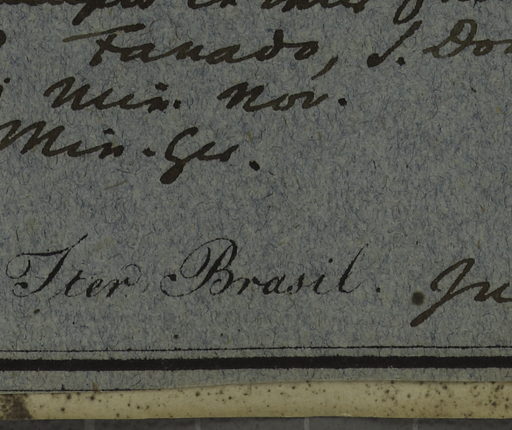 Fanado, S. Dom
Min. Nov.
Min. Ger.
Iter Brasil. Ju